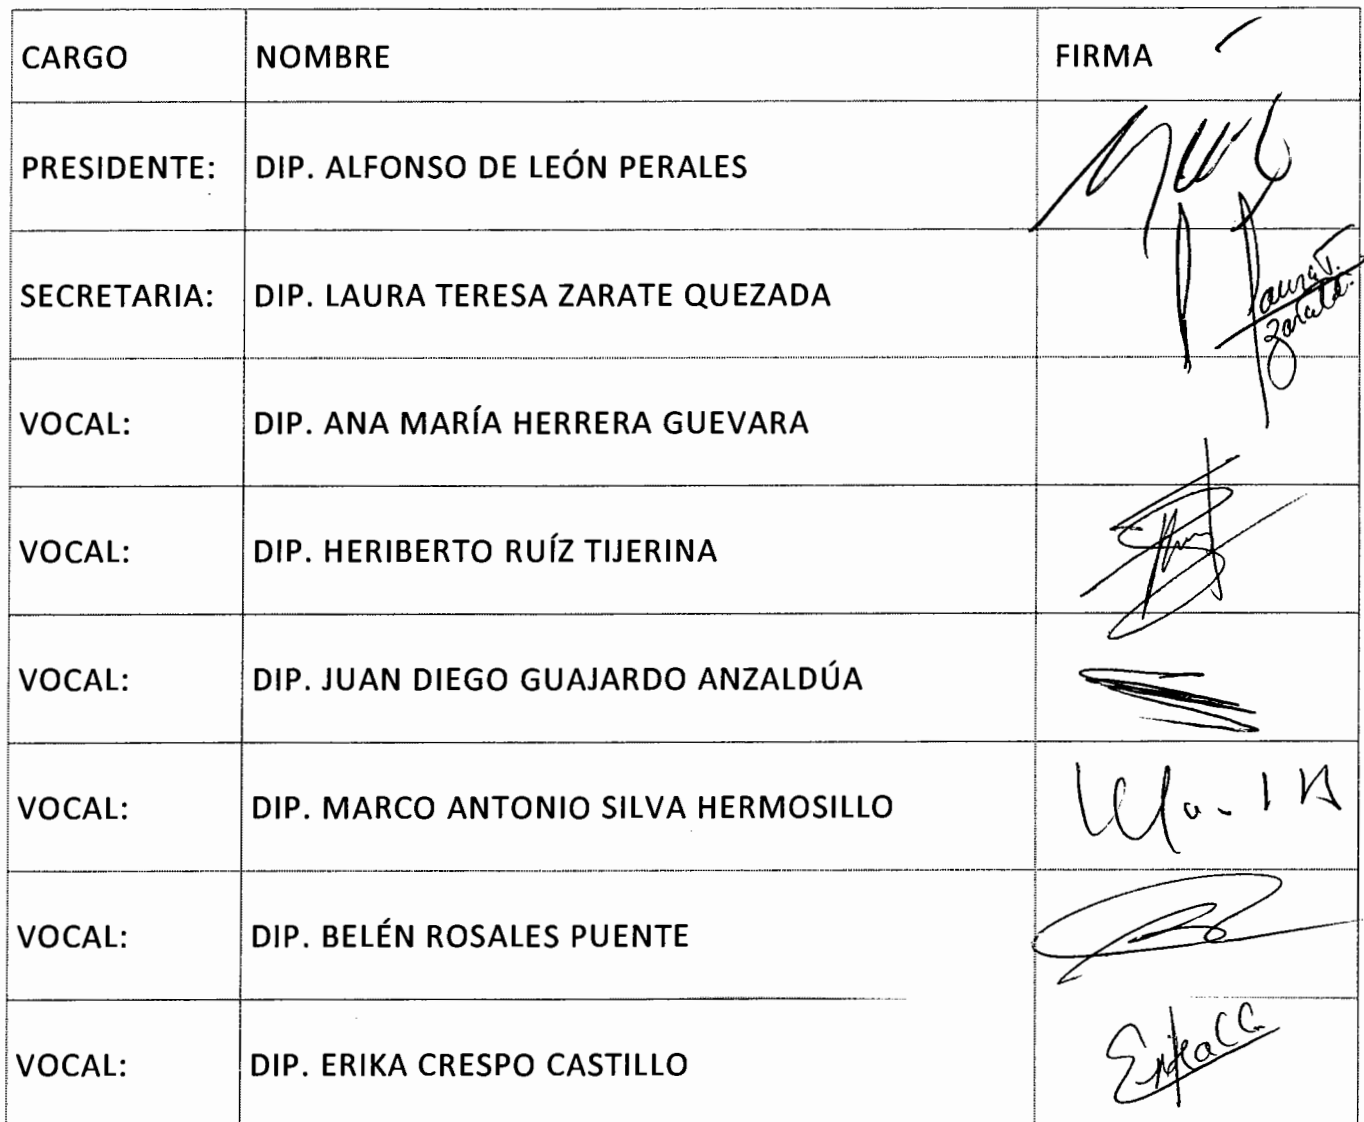 CARGO NOMBRE FIRMA
PRESIDENTE: DIP. ALFONSO DE LEÓN PERALES
SECRETARIA: DIP. LAURA TERESA ZARATE QUEZADA Laura T.
Zarate
VOCAL: DIP. ANA MARÍA HERRERA GUEVARA
VOCAL: DIP. HERIBERTO RUÍZ TIJERINA
VOCAL: DIP. JUAN DIEGO GUAJARDO ANZALDÚA
VOCAL: DIP. MARCO ANTONIO SILVA HERMOSILLO
VOCAL: DIP. BELÉN ROSALES PUENTE
VOCAL: DIP. ERIKA CRESPO CASTILLO Erika CC